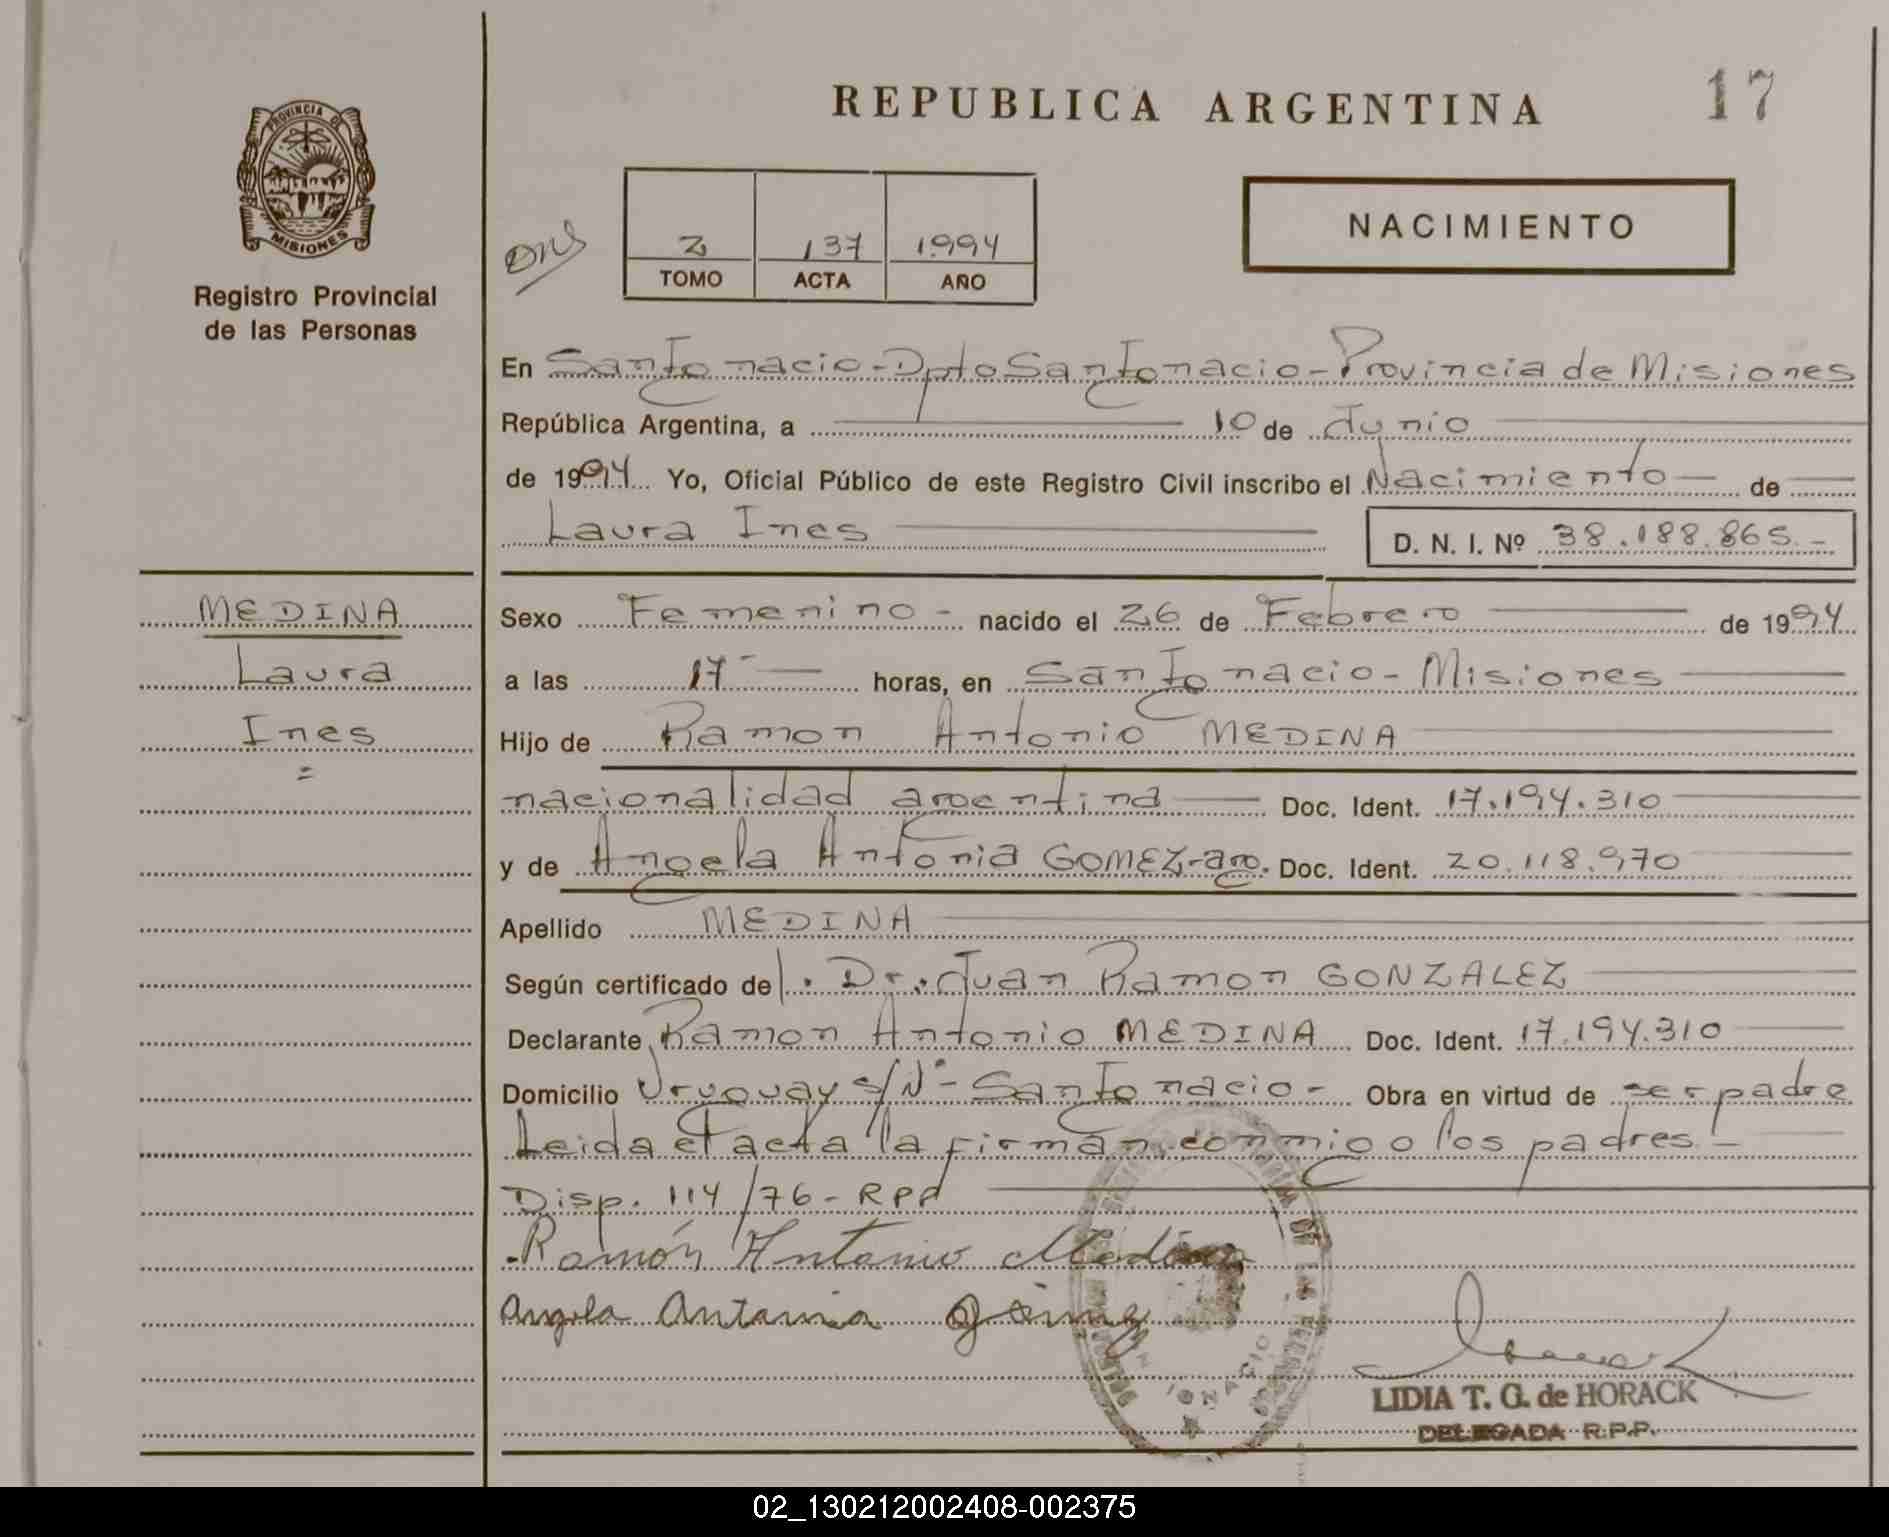 REPUBLICA ARGENTINA
17
PROVINCIA DE
MISIONES
Registro Provincial
de las Personas
2 137 1994
TOMO ACTA AÑO
NACIMIENTO
En San Ignacio - Dpto San Ignacio - Provincia de Misiones
República Argentina, a 10 de Junio
de 1994 Yo, Oficial Público de este Registro Civil inscribo el Nacimiento de
Laura Ines
D. N. I. Nº 38.188.865.-
MEDINA
Laura
Ines
Sexo Femenino - nacido el 26 de Febrero de 1994
a las 17 horas, en San Ignacio - Misiones
Hijo de Ramon Antonio MEDINA
nacionalidad argentina Doc. Ident. 17.194.310
y de Angela Antonia GOMEZ-arg. Doc. Ident. 20.118.970
Apellido MEDINA
Según certificado del. Dr. Juan Ramon GONZALEZ
Declarante Ramon Antonio MEDINA Doc. Ident. 17.194.310
Domicilio Uruguay s/Nº - San Ignacio - Obra en virtud de ser padre
Leida el acta la firman conmigo los padres.-
Disp. 114/76 - RPP
Ramón Antonio Medina
Angela Antonia Gómez
IGNACIO
LIDIA T. G. de HORACK
DELEGADA R.P.P.
02_130212002408-002375